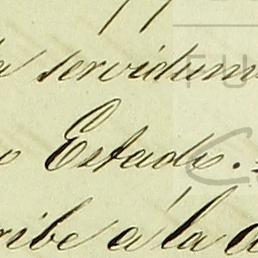 a servidum
o Estado.
ribe á la a